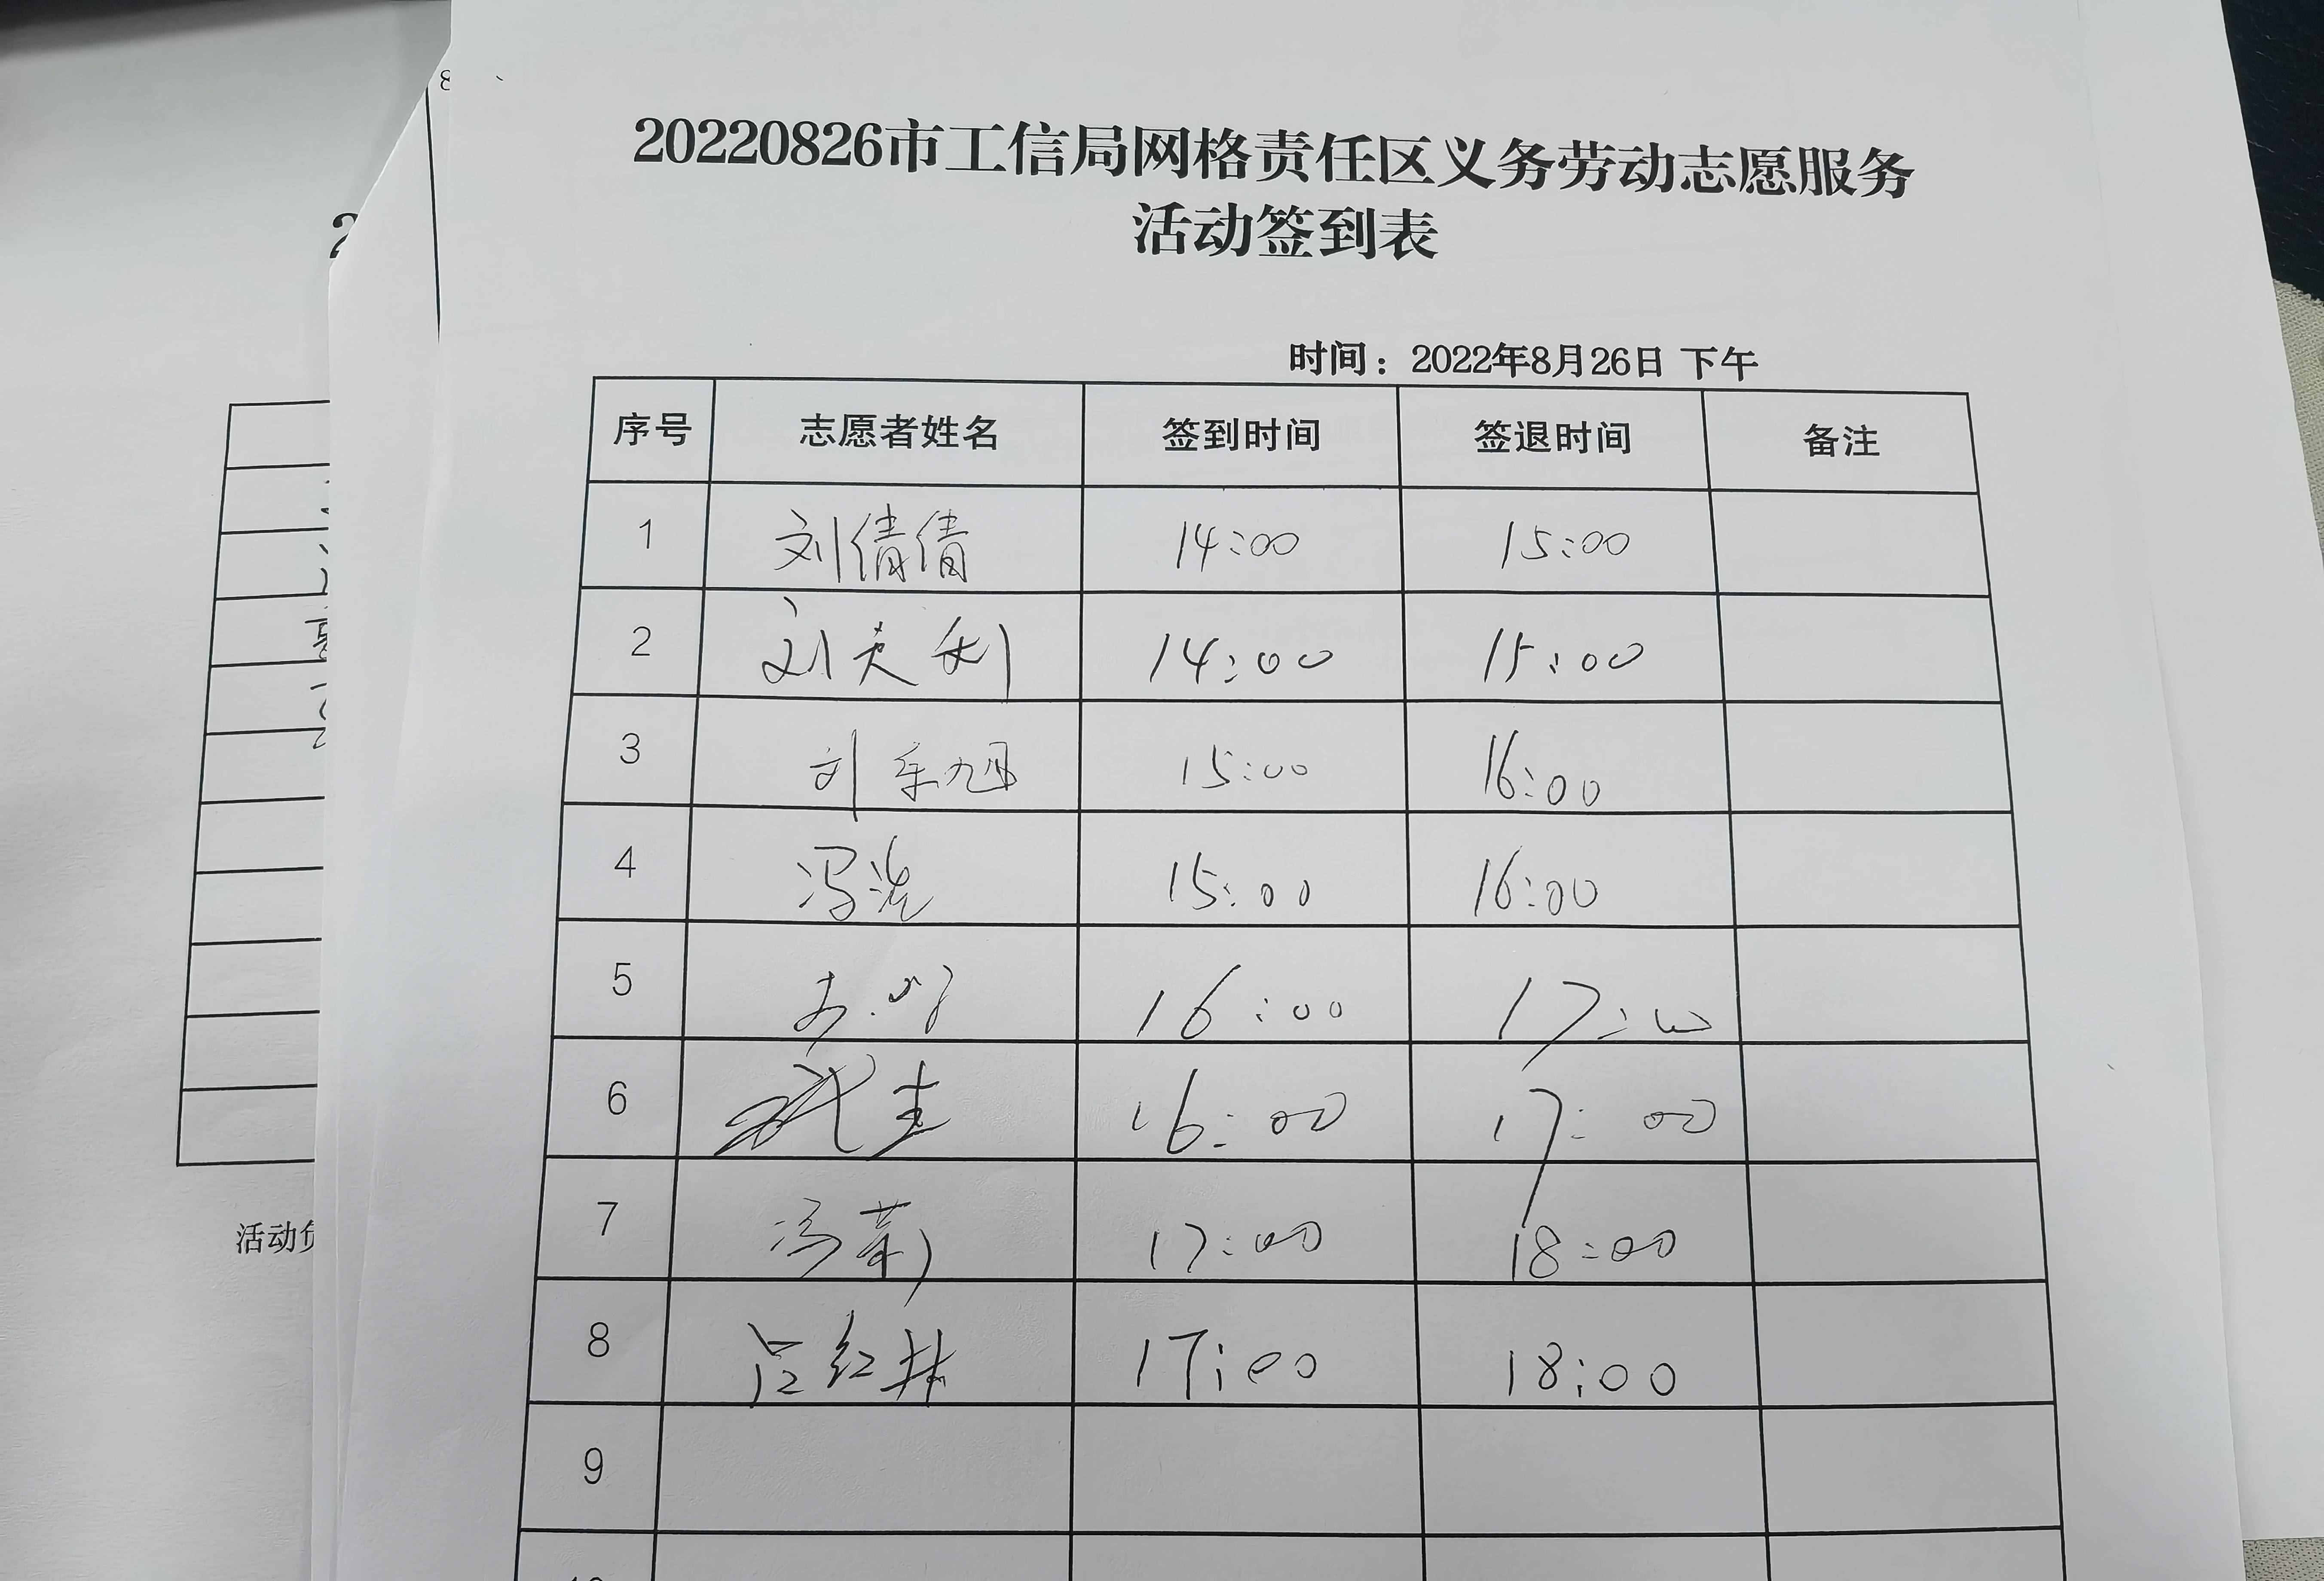 20220826市工信局网格责任区义务劳动志愿服务
活动签到表
时间：2022年8月26日 下午
序号 志愿者姓名 签到时间 签退时间 备注
1 刘倩倩 14:00 15:00
2 刘英利 14:00 15:00
3 刘 旭 15:00 16:00
4 冯 15:00 16:00
5 16:00 17:00
6 16:00 17:00
7 冯 17:00 18:00
8 红 17:00 18:00
9
活动